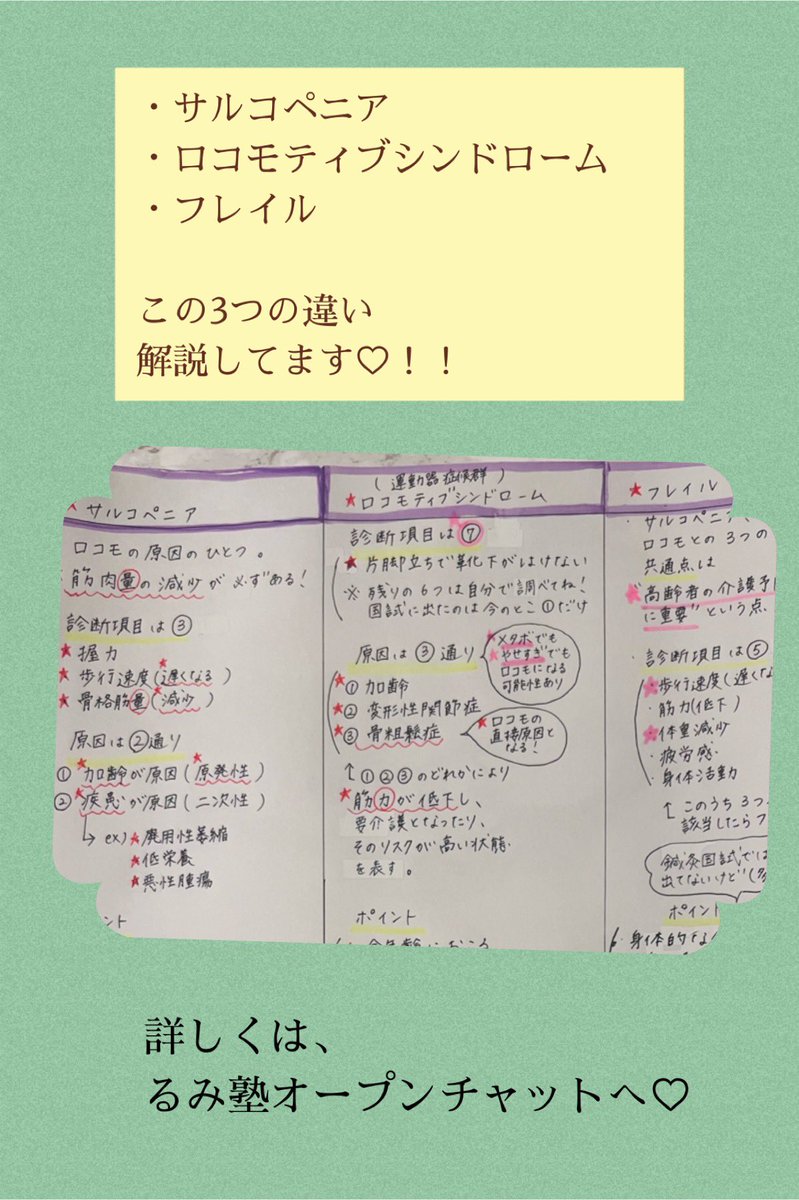 ・サルコペニア
・ロコモティブシンドローム
・フレイル
この3つの違い
解説してます♡！！
サルコペニア
ロコモの原因のひとつ。
筋肉量の減少が必ずある！
診断項目は③
★握力
★歩行速度(遅くなる)
★骨格筋量(減少)
原因は②通り
①加齢が原因(原発性)
②疾患が原因(二次性)
↳ex)★廃用性萎縮
★低栄養
★悪性腫瘍
ント
(運動器症候群)
★ロコモティブシンドローム
診断項目は⑦
★片脚立ちで靴下がはけない
※残りの6つは自分で調べてね！
国試に出たのは今のとこ①だけ
原因は③通り
★メタボでも
★やせすぎでも
ロコモになる
可能性あり
①加齢
②変形性関節症
③骨粗鬆症
★ロコモの
直接原因と
なる！
↑①②③のどれかにより
★筋力が低下し、
要介護となったり、
そのリスクが高い状態
を表す。
ポイント
★フレイル
・サルコペニア、
ロコモとの3つの
共通点は
"高齢者の介護予
に重要"という点
・診断項目は⑤
★歩行速度(遅くな
・筋力(低下)
★体重減少
・疲労感
・身体活動
↑このうち3つ
該当したらフ
鍼灸国試では
出てないけど
ポイント
身体的
詳しくは、
るみ塾オープンチャットへ♡